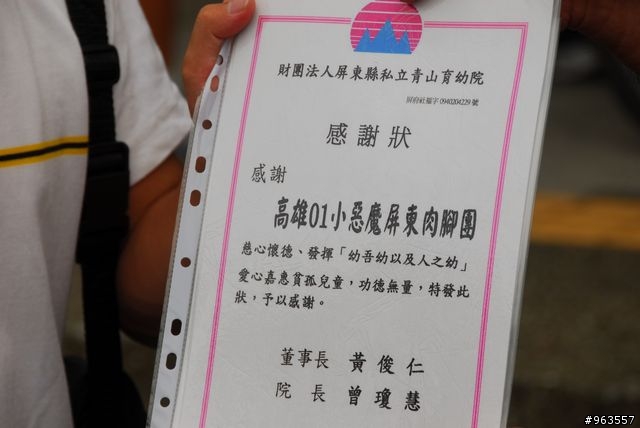 財團法人屏東縣私立青山育幼院
屏府社福字 0940204229 號
感謝狀
感謝
高雄01小惡魔屏東肉腳團
慈心懷德、發揮「幼吾幼以及人之幼」
愛心嘉惠貧孤兒童，功德無量，特發此
狀，予以感謝。
董事長 黃俊仁
院 長 曾瓊慧
#963557